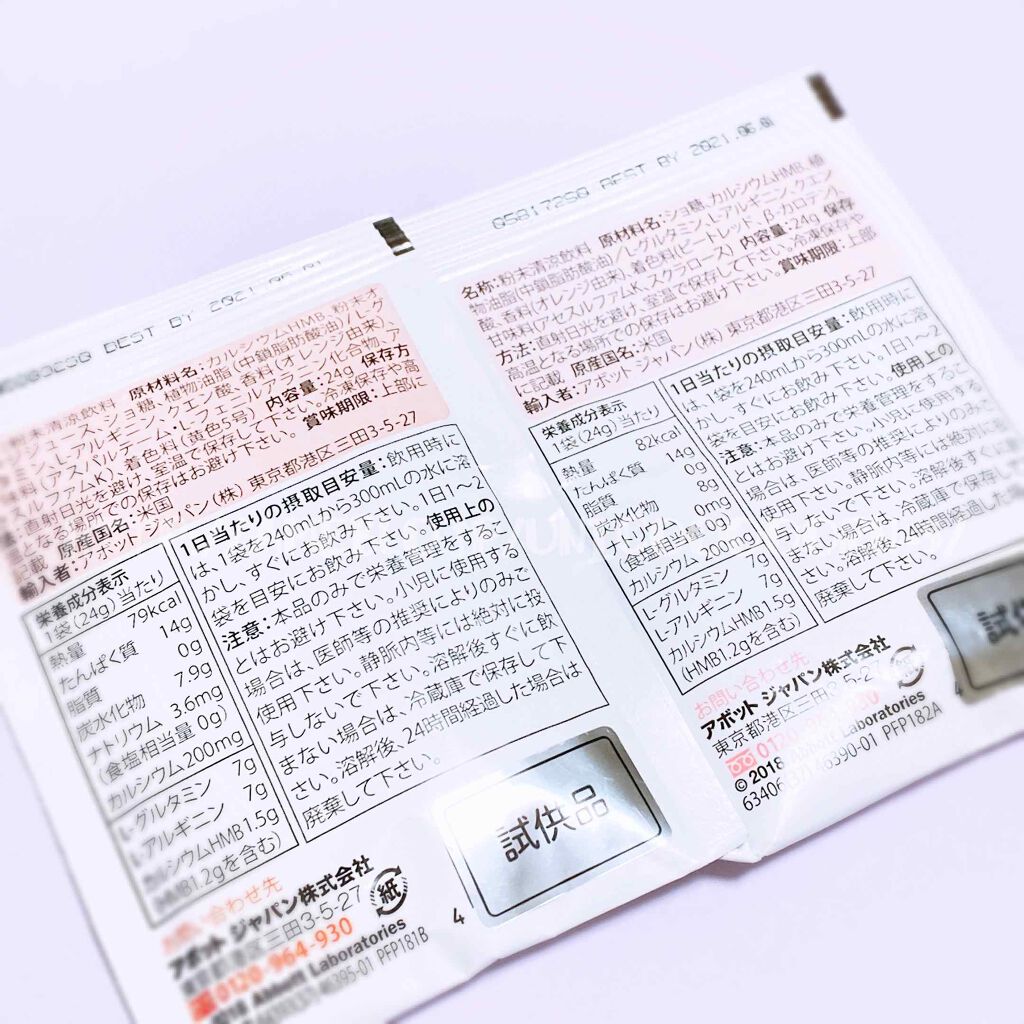 BEST BY 2021.06.01
粉末清涼飲料 原材料名:カルシウムHMB、粉末オ
ジュース、ショ糖、植物油脂(中鎖脂肪酸油)/L-グ
ミン、L-アルギニン、クエン酸、香料(オレンジ由来)、
味料(アスパルテーム・L-フェニルアラニン化合物、ア
スルファムK)、着色料(黄色5号) 内容量:24g 保存方
直射日光を避け、室温で保存して下さい。冷凍保存や高
となる場所での保存はお避け下さい。 賞味期限:上部に
記載 原産国名:米国
輸入者:アボット ジャパン(株) 東京都港区三田3-5-27
栄養成分表示
1袋(24g)当たり
熱量 79kcal
たんぱく質 14g
脂質 0g
炭水化物 7.9g
ナトリウム 3.6mg
(食塩相当量 0g)
カルシウム 200mg
L-グルタミン 7g
L-アルギニン 7g
カルシウムHMB 1.5g
(HMB1.2gを含む)
1日当たりの摂取目安量:飲用時に
は、1袋を240mLから300mLの水に溶
かし、すぐにお飲み下さい。1日1~2
袋を目安にお飲み下さい。使用上の
注意:本品のみで栄養管理をするこ
とはお避け下さい。小児に使用する
場合は、医師等の推奨によりのみご
使用下さい。静脈内等には絶対に投
与しないで下さい。溶解後すぐに飲
まない場合は、冷蔵庫で保存して下
さい。溶解後、24時間経過した場合は
廃棄して下さい。
お問い合わせ先
アボット ジャパン株式会社
東京都港区三田3-5-27
0120-964-930
2018 Abbott Laboratories
46395-01 PFP181B
紙
4
試供品
058172SQ BEST BY 2021.06.01
名称:粉末清涼飲料 原材料名:ショ糖、カルシウムHMB、植
物油脂(中鎖脂肪酸油)/L-グルタミン、L-アルギニン、クエン
酸、香料(オレンジ由来)、着色料(ビートレット、β-カロテン)、
甘味料(アセスルファムK、スクラロース) 内容量:24g 保存
方法:直射日光を避け、室温で保存して下さい。冷凍保存や
高温となる場所での保存はお避け下さい。 賞味期限:上部
に記載 原産国名:米国
輸入者:アボット ジャパン(株) 東京都港区三田3-5-27
栄養成分表示
1袋(24g)当たり
熱量 82kcal
たんぱく質 14g
脂質 0g
炭水化物 8g
ナトリウム 0mg
(食塩相当量 0g)
カルシウム 200mg
L-グルタミン 7g
L-アルギニン 7g
カルシウムHMB 1.5g
(HMB1.2gを含む)
1日当たりの摂取目安量:飲用時に
は、1袋を240mLから300mLの水に溶
かし、すぐにお飲み下さい。1日1~2
袋を目安にお飲み下さい。使用上の
注意:本品のみで栄養管理をするこ
とはお避け下さい。小児に使用する
場合は、医師等の推奨によりのみご
使用下さい。静脈内等には絶対に投
与しないで下さい。溶解後すぐに飲
まない場合は、冷蔵庫で保存して下
さい。溶解後、24時間経過した場
廃棄して下さい。
お問い合わせ先
アボット ジャパン株式会社
東京都港区三田3-5-27
0120
© 2018 Abbott Laboratories
46390-01 PFP182A
4
試供